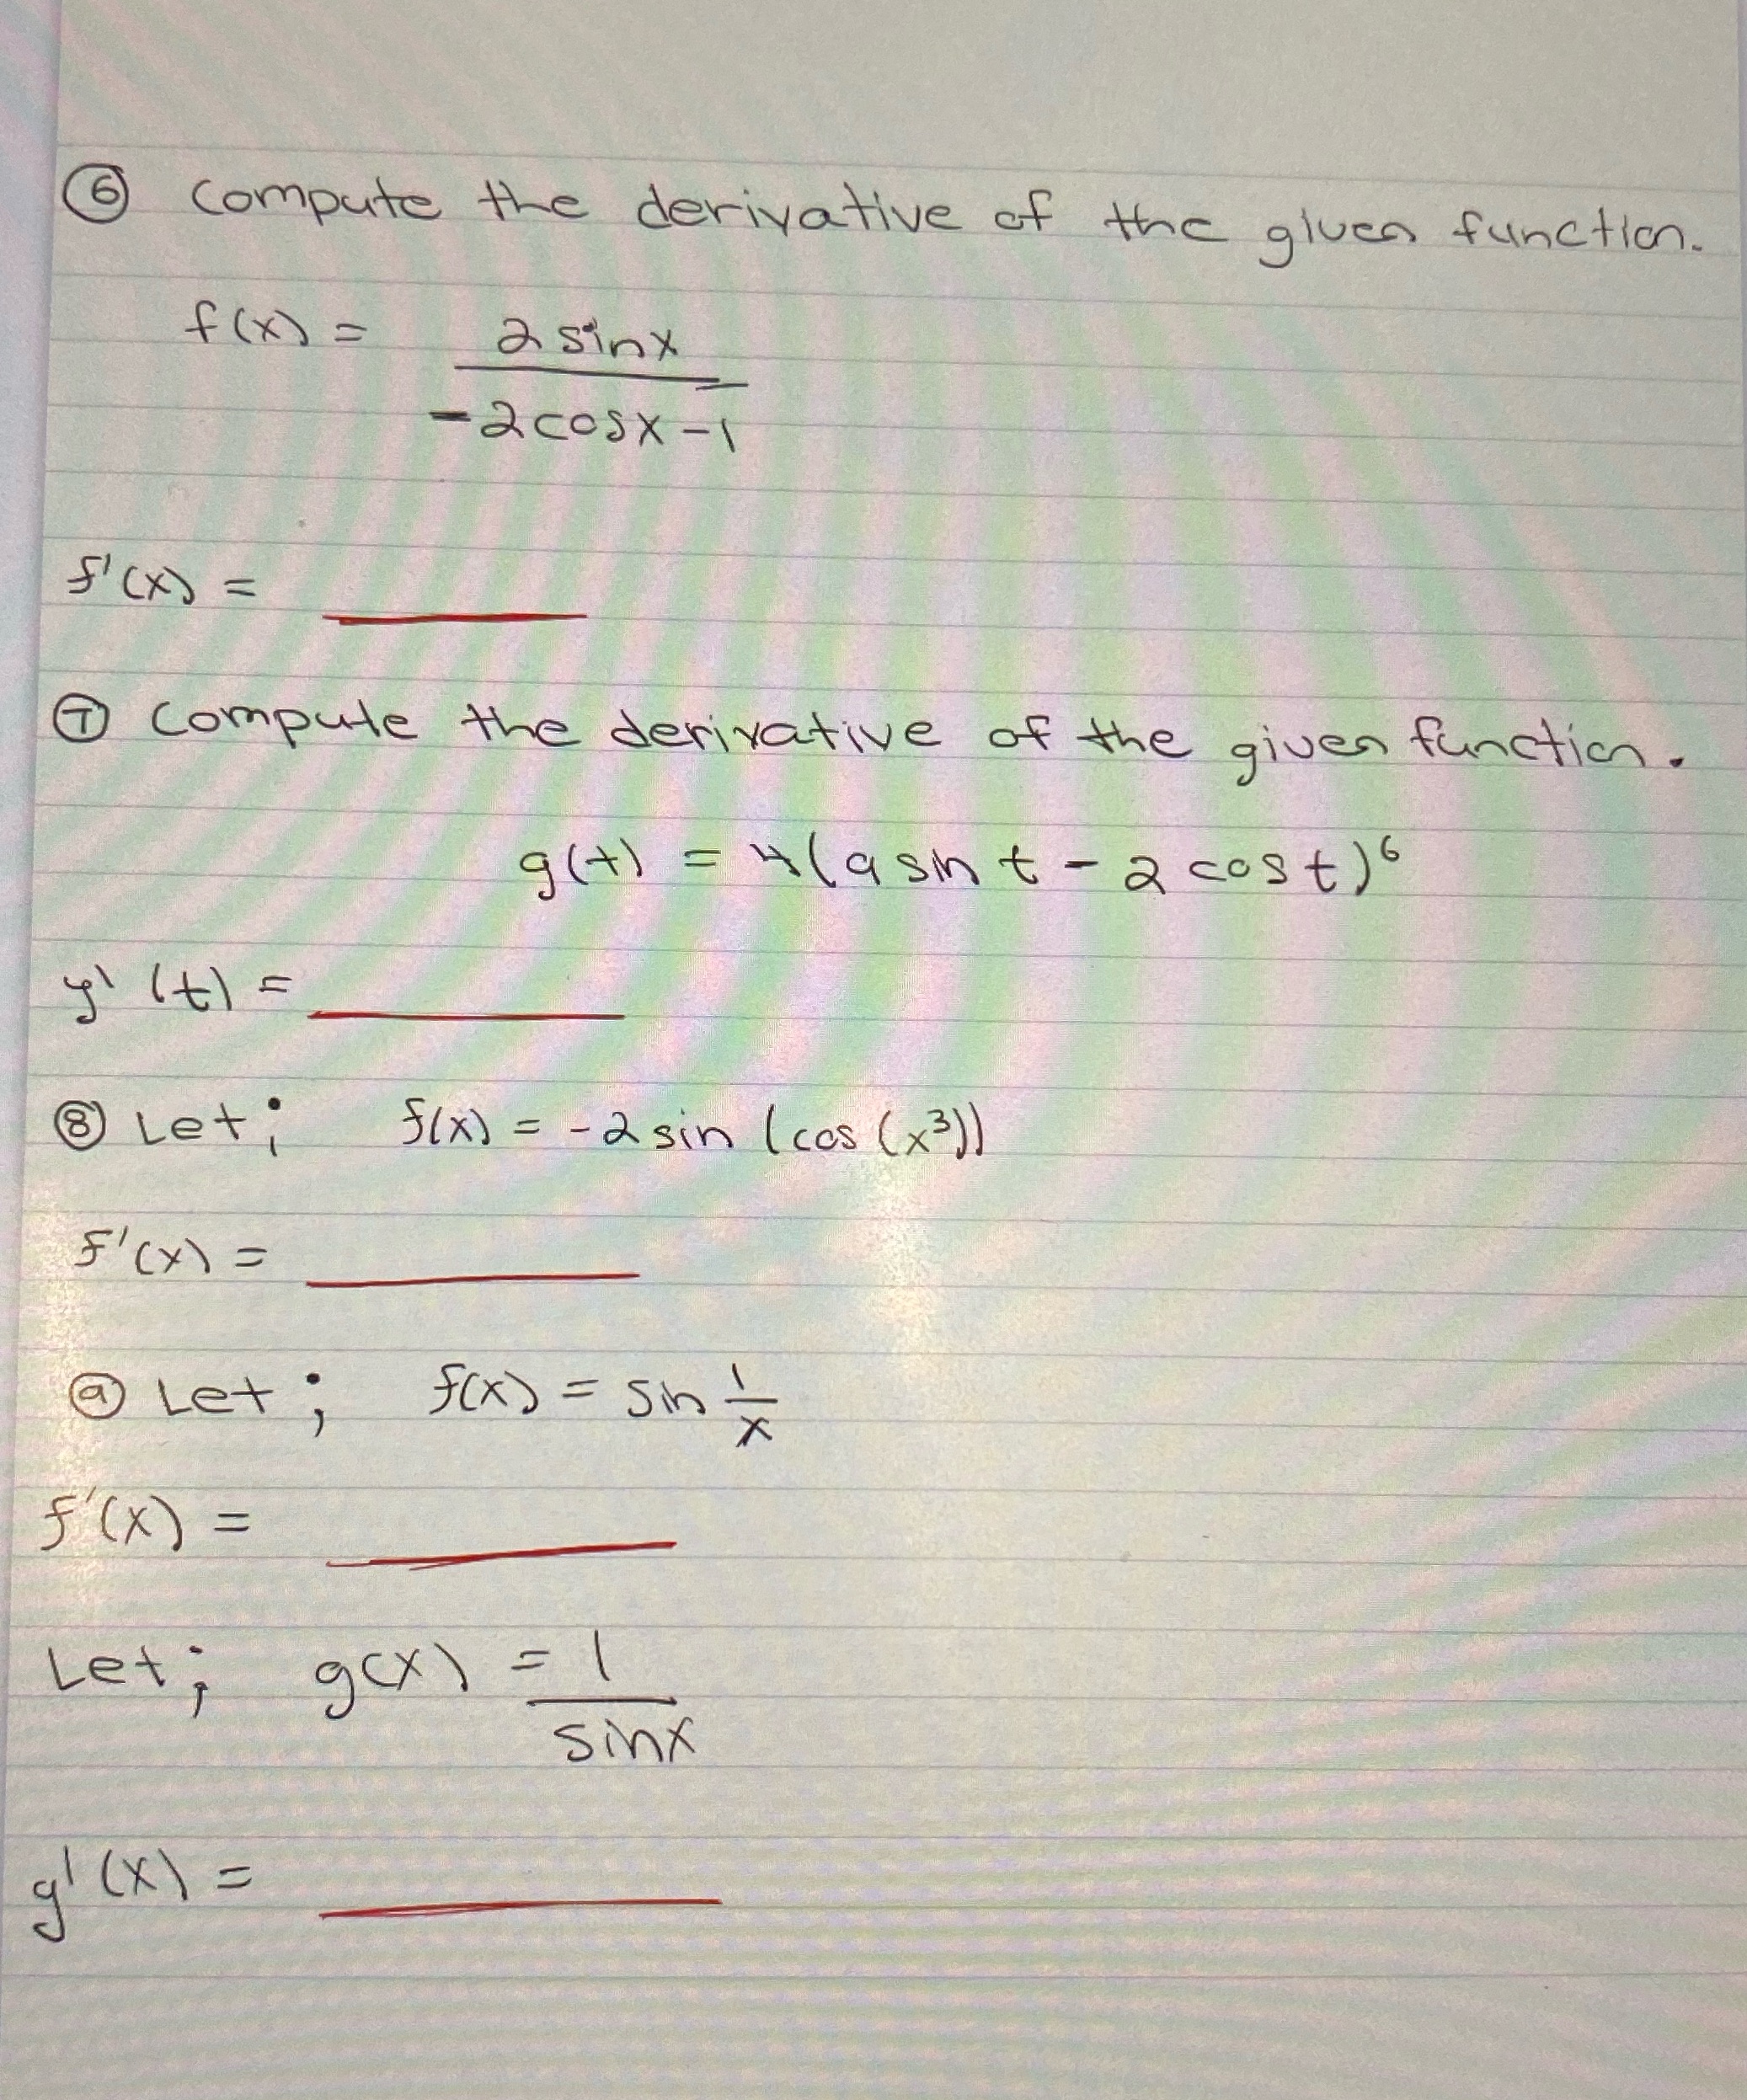 ⑥ compute the derivative of the given function.
f(x) = 2 sinx / -2cosx - 1
f'(x) =
⑦ compute the derivative of the given function.
g(t) = 4(9 sin t - 2 cos t)⁶
y' (t) =
⑧ Let; f(x) = -2 sin (cos (x³))
f'(x) =
⑨ Let; f(x) = sin 1/x
f'(x) =
Let; g(x) = 1 / sinx
g'(x) =